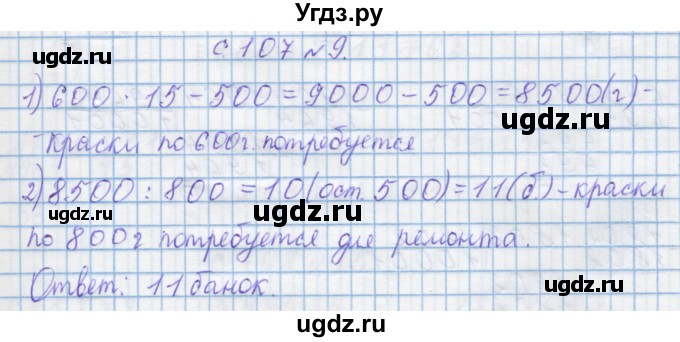 Угдз.ру
с 107 №9.
1) 600 · 15 - 500 = 9000 - 500 = 8500(г) -
- краски по 600г. потребуется
2) 8500 : 800 = 10(ост. 500) = 11(б) - краски
по 800г потребуется для ремонта.
Ответ: 11 банок.
ugdz.ru
ugdz.ru
ugdz.ru
ugdz.ru
ugdz.ru
ugdz.ru
ugdz.ru
ugdz.ru
ugdz.ru